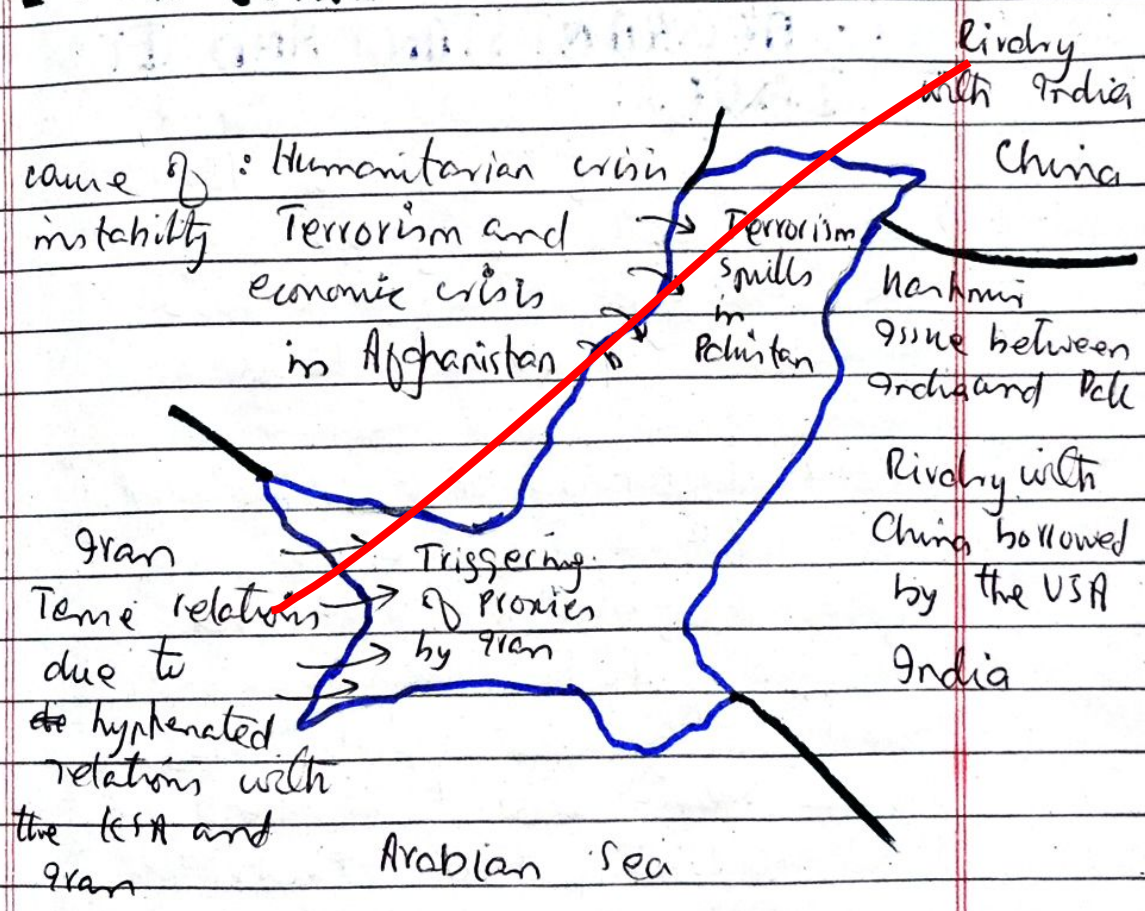 Rivalry
with India
China
cause of : Humanitarian crisis
instability Terrorism and
economic crisis
in Afghanistan
Terrorism
spills
in
Pakistan
Kashmir
Issue between
India and Pak
Rivalry with
China borrowed
by the USA
India
Iran
Tense relations
due to
hyphenated
relations with
the KSA and
Iran
Triggering
of Proxies
by Iran
Arabian Sea